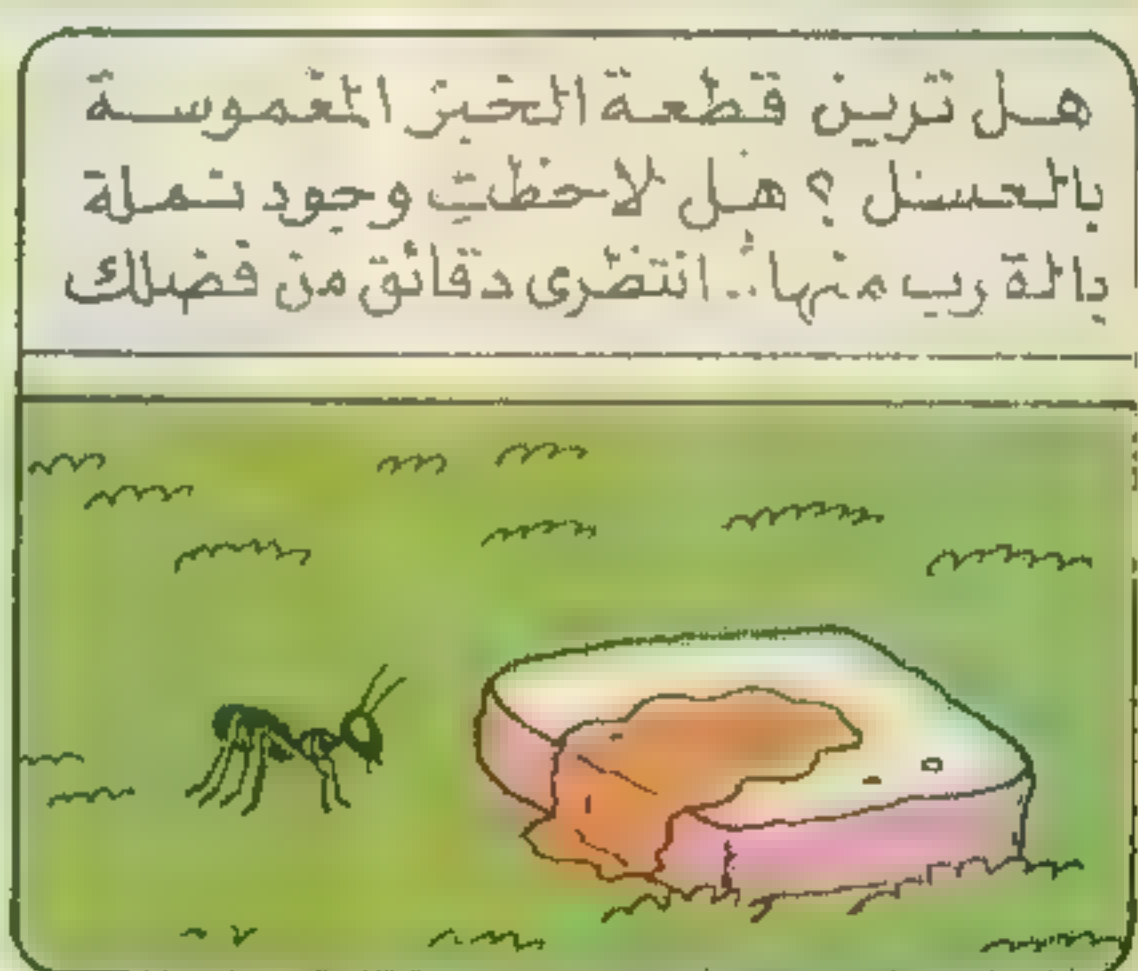 هل ترين قطعة الخبز المغموسة
بالعسل ؟ هل لاحظتِ وجود نملة
بالقرب منها.. انتظرى دقائق من فضلك